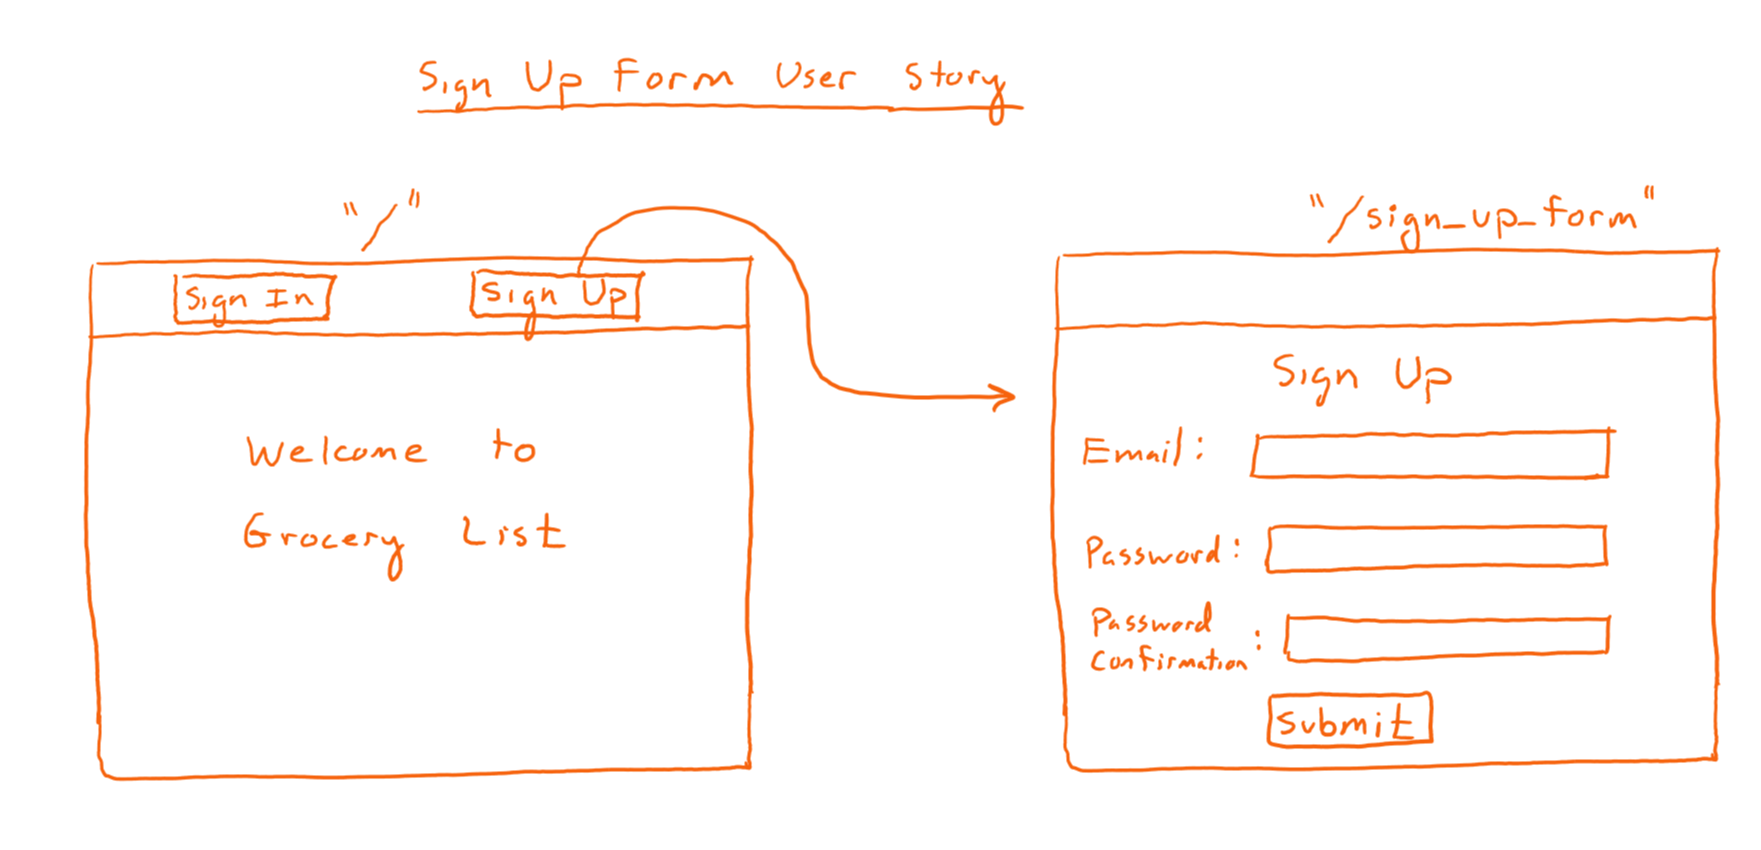 Sign Up Form User Story
"/"
Sign In
Sign Up
Welcome to
Grocery List
"/sign_up_form"
Sign Up
Email:
Password:
Password
Confirmation:
Submit